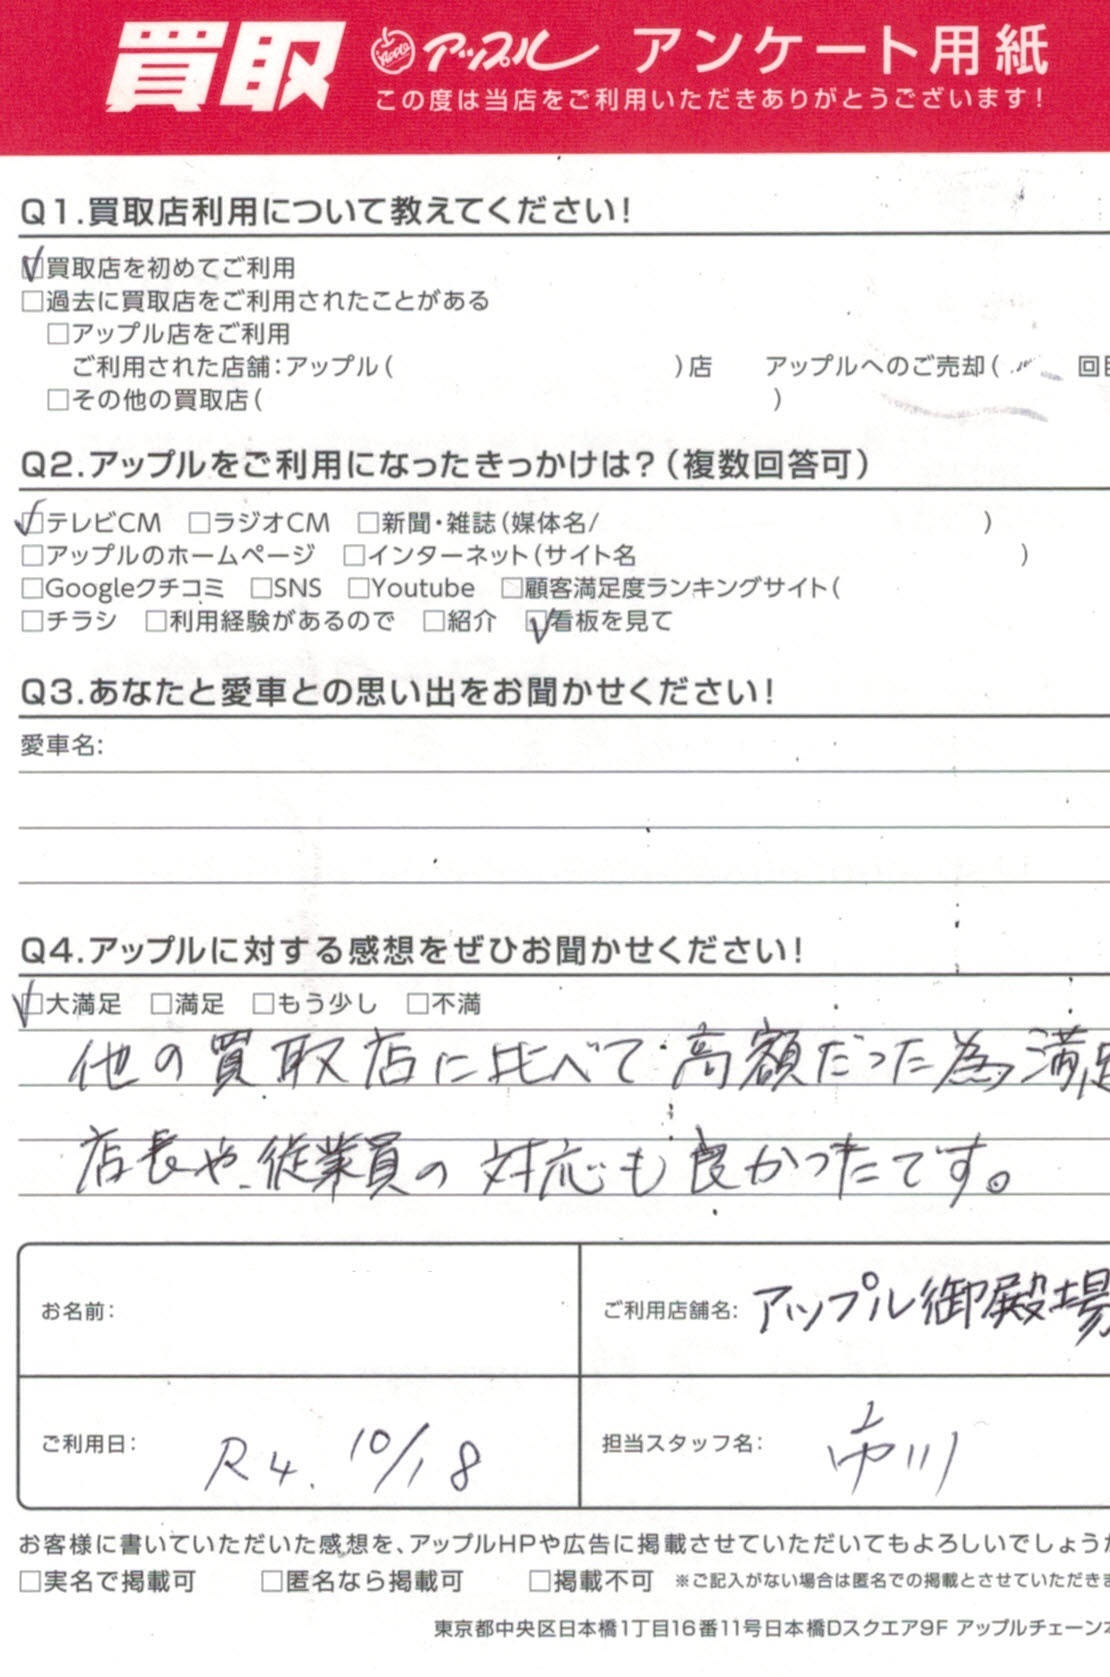 買取 Apple アップル アンケート用紙
この度は当店をご利用いただきありがとうございます!
Q1.買取店利用について教えてください!
☑買取店を初めてご利用
□過去に買取店をご利用されたことがある
□アップル店をご利用
ご利用された店舗:アップル( )店 アップルへのご売却( 回目
□その他の買取店( )
Q2.アップルをご利用になったきっかけは?(複数回答可)
☑テレビCM □ラジオCM □新聞・雑誌(媒体名/ )
□アップルのホームページ □インターネット(サイト名 )
□Googleクチコミ □SNS □Youtube □顧客満足度ランキングサイト(
□チラシ □利用経験があるので □紹介 ☑看板を見て
Q3.あなたと愛車との思い出をお聞かせください!
愛車名:
Q4.アップルに対する感想をぜひお聞かせください!
☑大満足 □満足 □もう少し □不満
他の買取店に比べて高額だった為満足
店長や従業員の対応も良かったです。
お名前: ご利用店舗名: アップル御殿場
ご利用日: R4. 10/18 担当スタッフ名: 市川
お客様に書いていただいた感想を、アップルHPや広告に掲載させていただいてもよろしいでしょうか
□実名で掲載可 □匿名なら掲載可 □掲載不可 ※ご記入がない場合は匿名での掲載とさせていただきま
東京都中央区日本橋1丁目16番11号日本橋Dスクエア9F アップルチェーン本